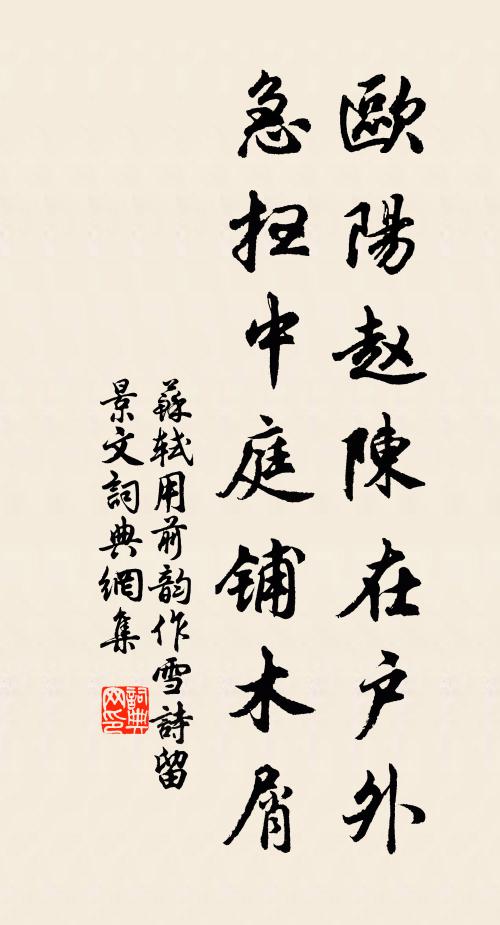 歐陽赵陳在户外
急扫中庭铺木屑
蘇軾用前韵作雪詩留
景文詞典網集
詞典
网印